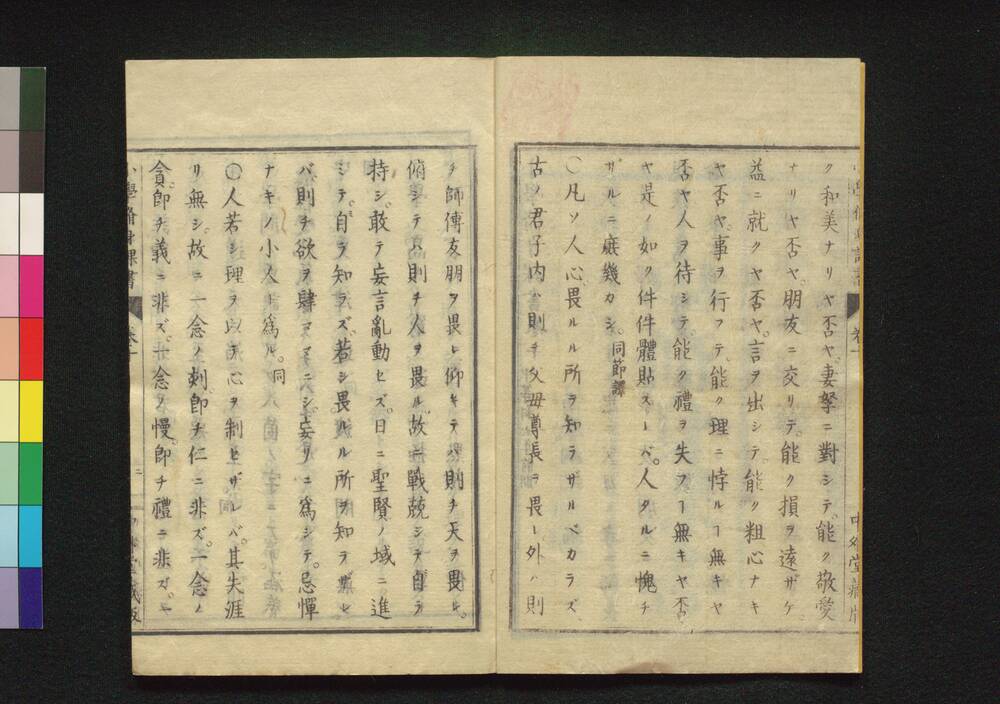 ク和美ナリヤ否ヤ。妻孥ニ對シテ、能ク敬愛
ナリヤ否ヤ。朋友ニ交リテ、能ク損ヲ遠ザケ
益ニ就クヤ否ヤ。言ヲ出シテ、能ク粗心ナキ
ヤ否ヤ。事ヲ行フテ、能ク理ニ悖ルヿ無キヤ
否ヤ。人ヲ待シテ、能ク禮ヲ失フヿ無キヤ否
ヤ。是ノ如ク件件體貼スレバ、人タルニ愧ヂ
ザルニ庶幾カシ。同節譯
〇凡ソ人心畏ルル所ヲ知ラザルベカラズ、
古ノ君子内ハ則チ父母尊長ヲ畏レ外ハ則
チ師傅友朋ヲ畏レ仰ギテハ則チ天ヲ畏レ。
俯シテハ則チ人ヲ畏ル。故ニ戰兢シテ自ラ
持シ。敢テ妄言亂動セズ。日ニ聖賢ノ域ニ進
ミテ。自ラ知ラズ。若シ畏ルル所ヲ知ラザレ
バ、則チ欲ヲ肆ママニシ。妄リニ爲シテ。忌憚
ナキノ小人ト爲ル。同
〇人若シ理ヲ以テ心ヲ制セザレバ。其失涯
リ無シ。故ニ一念ノ刻。卽チ仁ニ非ズ。一念ノ
貪。卽チ義ニ非ズ。一念ノ慢。卽チ禮ニ非ズ。一
小學脩身課書
卷一
二